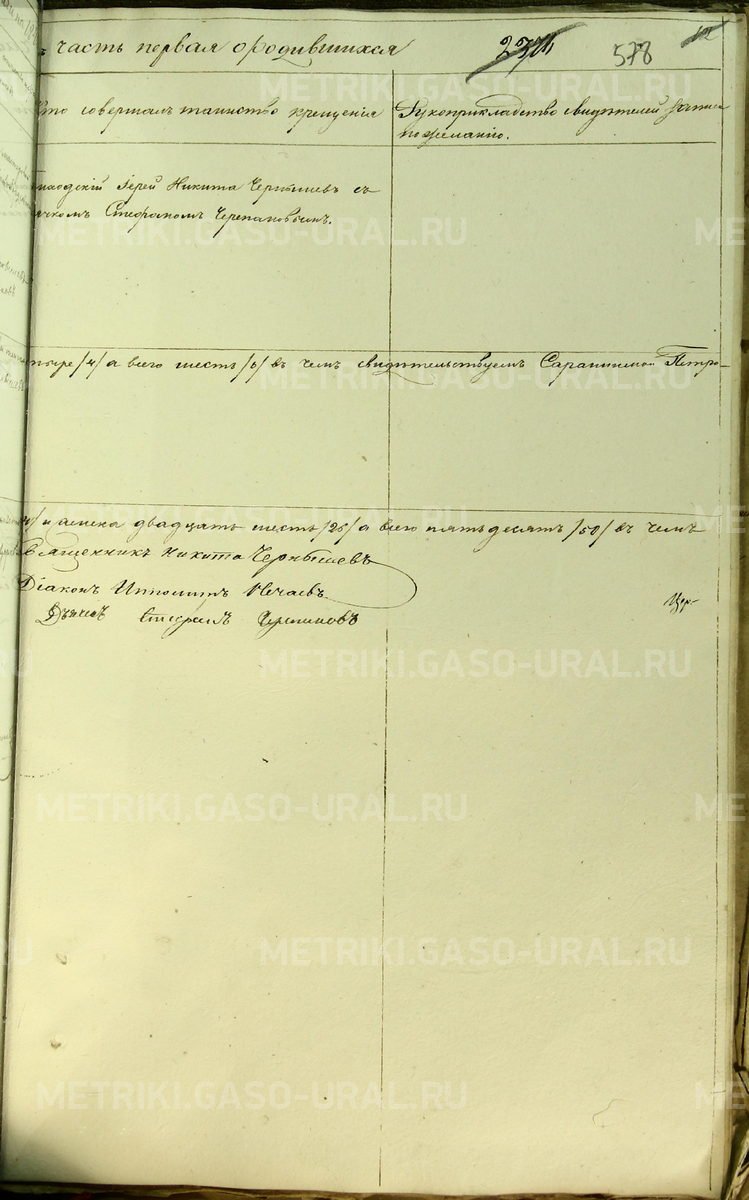 часть первая о родившихся
2371
578
12
Кто совершалъ таинство крещенія
Рукоприкладство свидѣтелей записи
по желанію.
Приходскій Іерей Никита Чернышевъ съ
дьячкомъ Стефаномъ Черепановымъ.
четыре /4/ а всего шесть /6/ въ чемъ свидѣтельствуемъ Сарапинской Петро-
и женска двадцать шесть /26/ а всего пятьдесятъ /50/ въ чемъ
Священникъ Никита Чернышевъ
Діаконъ Ипполитъ Нечаевъ
Дьячекъ Стефанъ Черепановъ
Цер-
METRIKI.GASO-URAL.RU